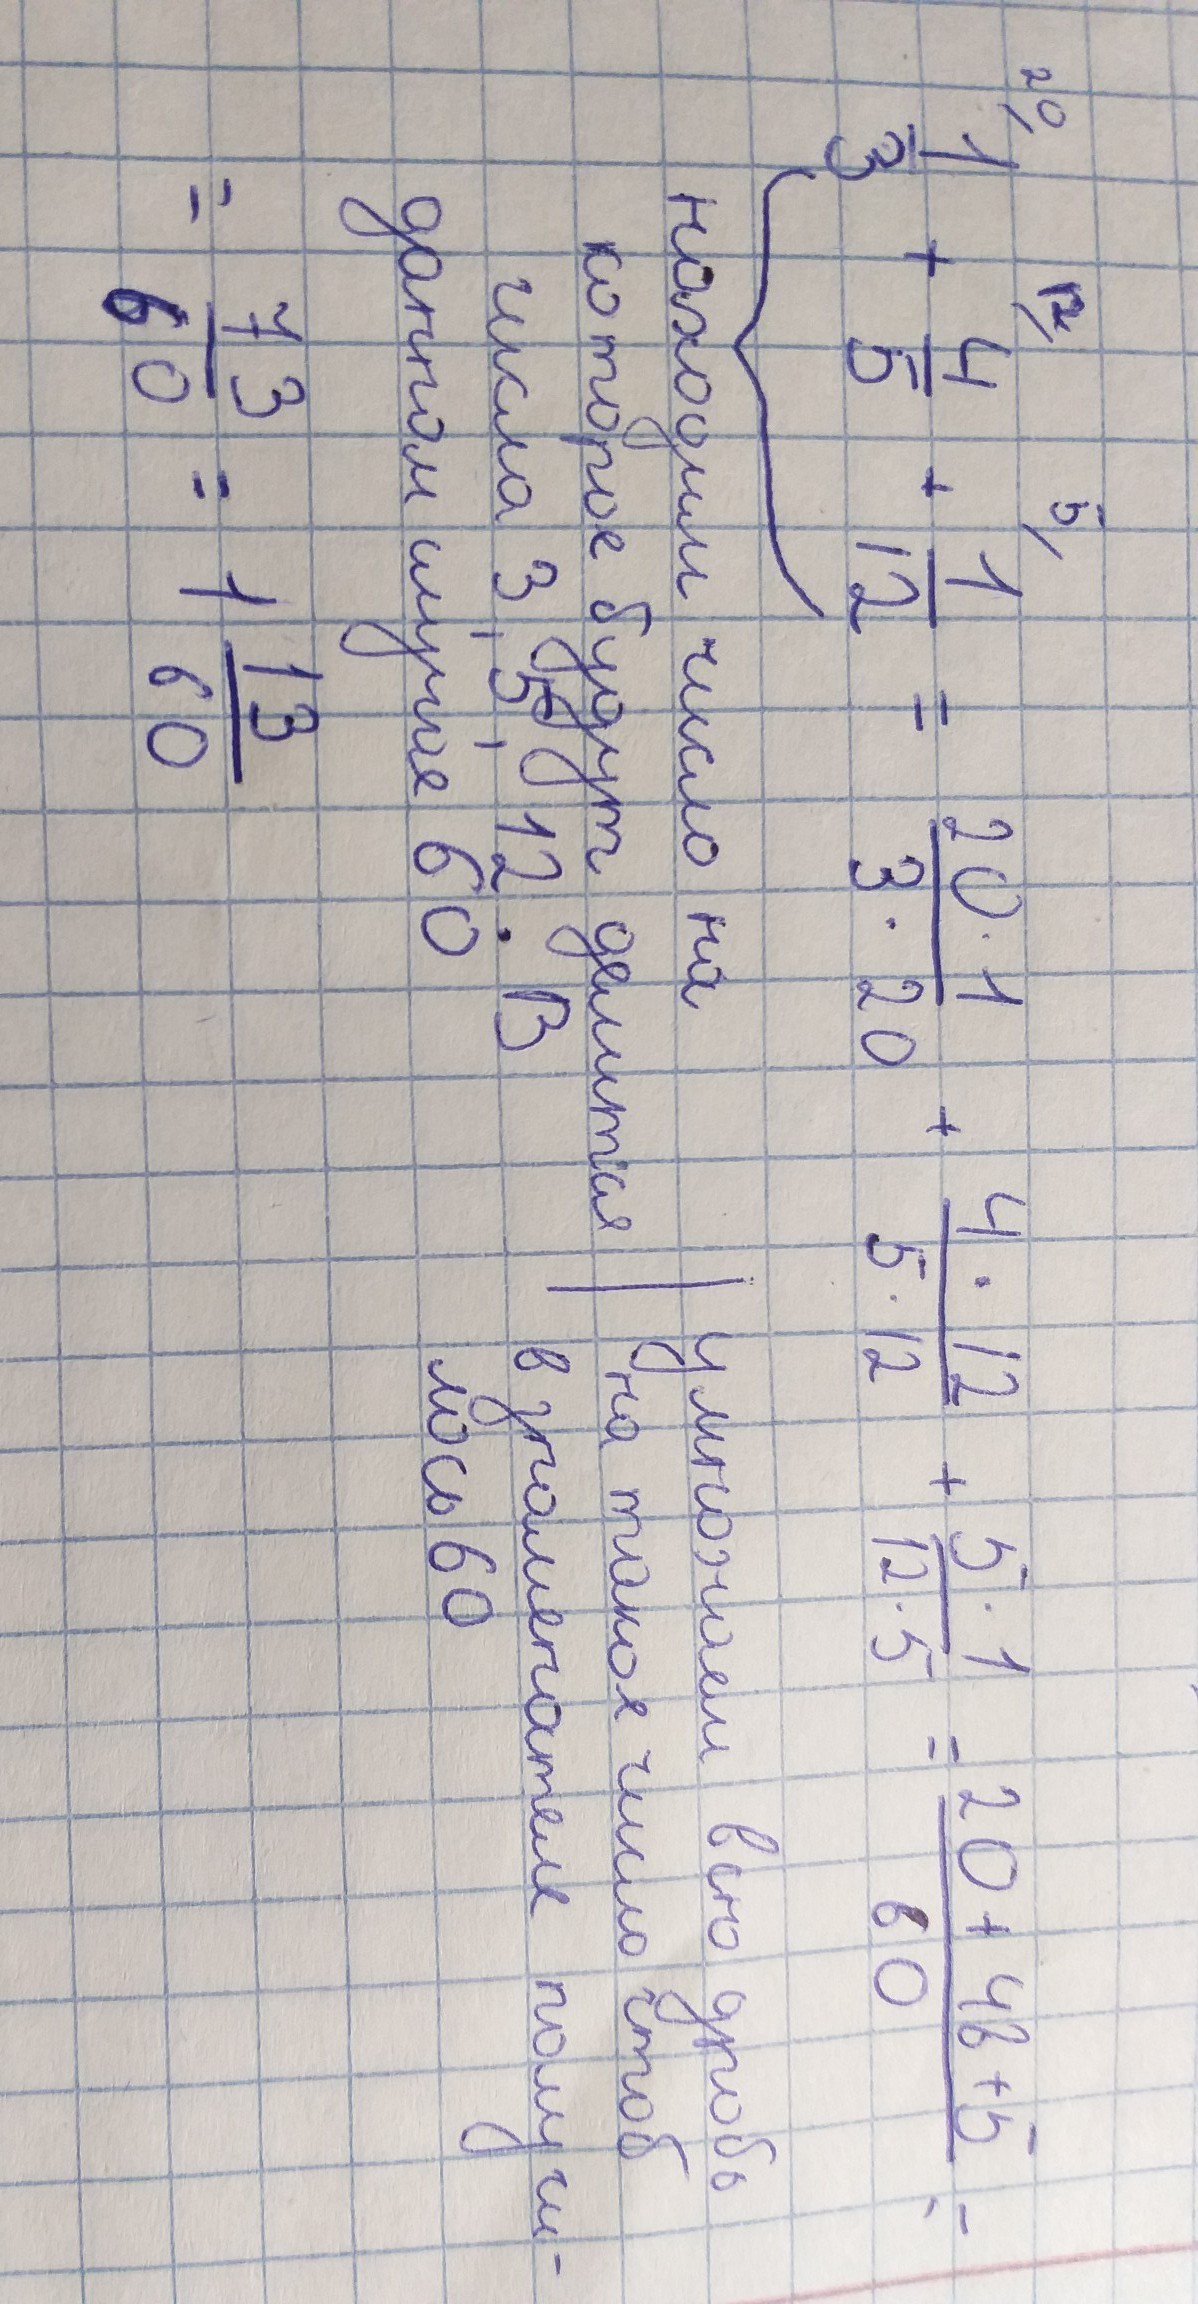 20/ 12/ 5/
1/3 + 4/5 + 1/12 = 20·1/3·20 + 4·12/5·12 + 5·1/12·5 = 20+48+5/60 =
находим число на
которое будут делится
числа 3, 5, 12. В
данном случае 60
умножаем всю дробь
на такое число чтоб
в знаменателе получи-
лось 60
= 73/60 = 1 13/60